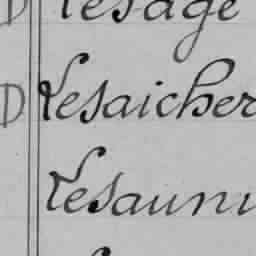 D Lesage
D Lesaicher
Lesaun